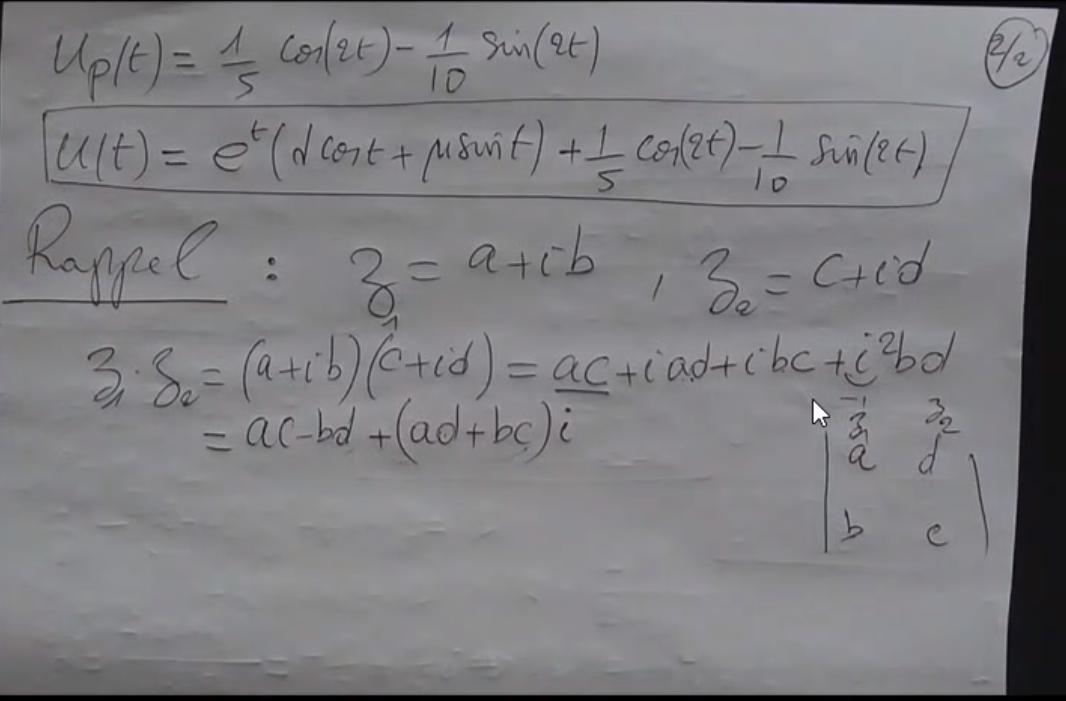 Up(t) = 1/5 cos(2t) - 1/10 sin(2t)
2/2
U(t) = e^t (d cos t + μ sin t) + 1/5 cos(2t) - 1/10 sin(2t)
Rappel : z₁ = a + ib , z₂ = c + id
z₁ · z₂ = (a + ib)(c + id) = ac + iad + ibc + i²bd
-1
= ac - bd + (ad + bc)i
z₁ z₂
a d
b c